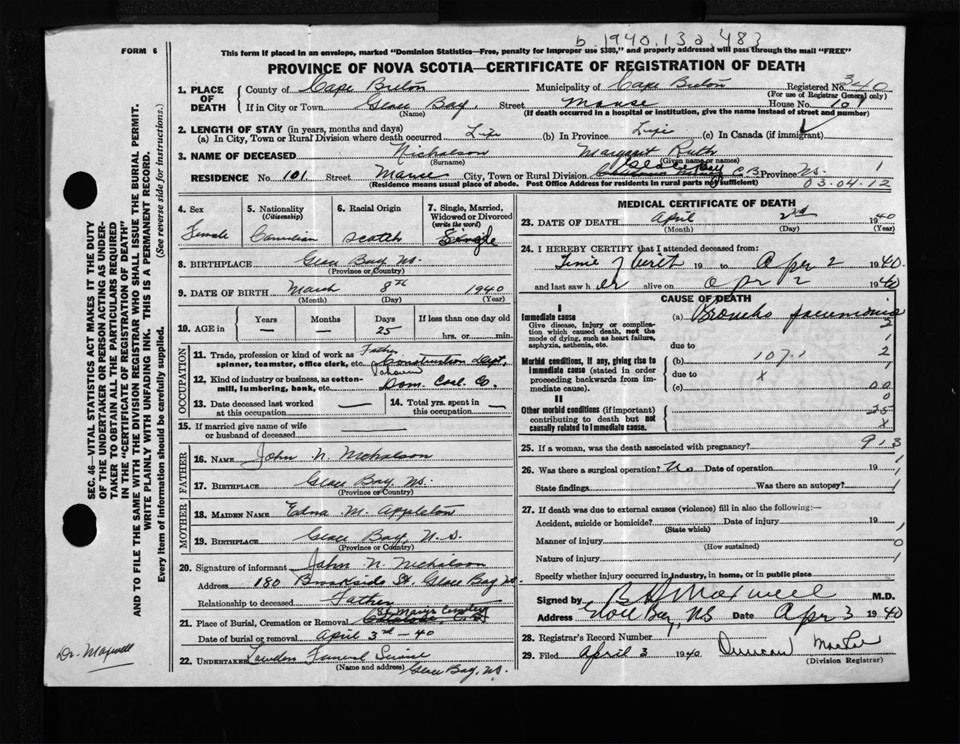 b. 1940.13a.483
FORM 6
This form if placed in an envelope, marked "Dominion Statistics—Free, penalty for improper use $300," and properly addressed will pass through the mail "FREE"
PROVINCE OF NOVA SCOTIA—CERTIFICATE OF REGISTRATION OF DEATH
1. PLACE OF DEATH County of Cape Breton Municipality of Cape Breton Registered No. 340
(For use of Registrar General only)
If in City or Town Glace Bay, Street Manse House No. 101
(Name) (If death occurred in a hospital or institution, give the name instead of street and number)
2. LENGTH OF STAY (in years, months and days)
(a) In City, Town or Rural Division where death occurred Life (b) In Province Life (c) In Canada (if immigrant)
3. NAME OF DECEASED Nicholson Margaret Ruth
(Surname) (Given name or names)
Glace Bay
RESIDENCE No. 101 Street Manse City, Town or Rural Division C.B. Province NS. 1
(Residence means usual place of abode. Post Office Address for residents in rural parts if sufficient) 03.04.12
4. Sex
Female
5. Nationality
(Citizenship)
Canadian
6. Racial Origin
Scotch
7. Single, Married, Widowed or Divorced
(write the word)
Single
8. BIRTHPLACE Glace Bay NS.
(Province or Country)
9. DATE OF BIRTH March 8th 1940
(Month) (Day) (Year)
10. AGE in Years — Months — Days 25 If less than one day old
hrs. or min.
OCCUPATION
11. Trade, profession or kind of work as spinner, teamster, office clerk, etc. Father Construction Dept.
12. Kind of industry or business, as cotton-mill, lumbering, bank, etc. Dom. Coal Co.
13. Date deceased last worked at this occupation —
14. Total yrs. spent in this occupation —
15. If married give name of wife or husband of deceased —
FATHER
16. NAME John N. Nicholson
17. BIRTHPLACE Glace Bay NS.
(Province or Country)
MOTHER
18. MAIDEN NAME Edna M. Appleton
19. BIRTHPLACE Glace Bay, N.S.
(Province or Country)
20. Signature of informant John N. Nicholson
Address 180 Brookside St. Glace Bay NS
Relationship to deceased Father
21. Place of Burial, Cremation or Removal St Marys Cemetery
Date of burial or removal April 3rd - 40
22. UNDERTAKER Funeral Service
(Name and address) Glace Bay, NS.
MEDICAL CERTIFICATE OF DEATH
23. DATE OF DEATH April 2nd 1940
(Month) (Day) (Year)
24. I HEREBY CERTIFY that I attended deceased from:
Time of 19 to Apr 2 1940
and last saw her alive on Apr 2 1940
CAUSE OF DEATH
I
Immediate cause (a) Broncho pneumonia
Give disease, injury or complication which caused death, not the mode of dying, such as heart failure, asphyxia, asthenia, etc. 2
due to 1
Morbid conditions, if any, giving rise to immediate cause (stated in order proceeding backwards from immediate cause) (b) 107.1 2
due to X 1
(c) 00
II 0
Other morbid conditions (if important) contributing to death but not causally related to immediate cause. 25
X
25. If a woman, was the death associated with pregnancy? 913
26. Was there a surgical operation? No Date of operation 19 1
State findings Was there an autopsy? 1
27. If death was due to external causes (violence) fill in also the following:—
Accident, suicide or homicide? Date of injury 19 1
(State which)
Manner of injury 0
(How sustained)
Nature of injury 1
Specify whether injury occurred in industry, in home, or in public place
Signed by Maxwell M.D.
Address Glace Bay, NS Date Apr 3 1940
28. Registrar's Record Number
29. Filed April 3 1940 Duncan
(Division Registrar)
SEC. 46—VITAL STATISTICS ACT MAKES IT THE DUTY OF THE UNDERTAKER OR PERSON ACTING AS UNDERTAKER TO OBTAIN ALL THE PARTICULARS REQUIRED IN THE "CERTIFICATE OF REGISTRATION OF DEATH" AND TO FILE THE SAME WITH THE DIVISION REGISTRAR WHO SHALL ISSUE THE BURIAL PERMIT.
WRITE PLAINLY WITH UNFADING INK. THIS IS A PERMANENT RECORD.
Every item of information should be carefully supplied. (See reverse side for instructions.)
Dr. Maxwell